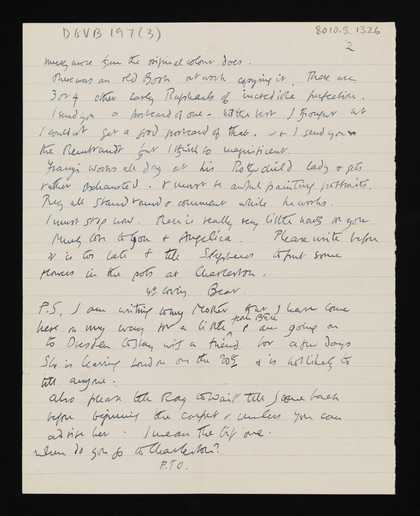 DGVB 197(3)
8010.5.1326
2
much more from the original colour does.
There was an old Boche at work copying it. There are
3 or 4 other lovely Raphaels of incredible perfection.
I send you a postcard of one - not the best I thought but
I couldn't get a good postcard of that. I send you
the Rembrandt but I think so magnificent.
works all day at his Rothschild lady & gets
rather exhausted. It must be awful painting portraits.
They all stand round & comment while he works.
I must stop now. There is really very little news to give
Much love to you & Angelica. Please write before
it is too late & tell Stephens to put some
flowers in the pots at Charleston.
Yr loving Bear
P.S. I am writing to my Mother that I have come
here on my way for a little from Berlin & am going on
to Dresden to stay with a friend for a few days
She is leaving London on the 20th & is not likely to
tell anyone.
Also please tell Ray to wait till I come back
before beginning the carpet & unless you can
advise her. I mean the big one.
When do you go to Charleston?
P.T.O.